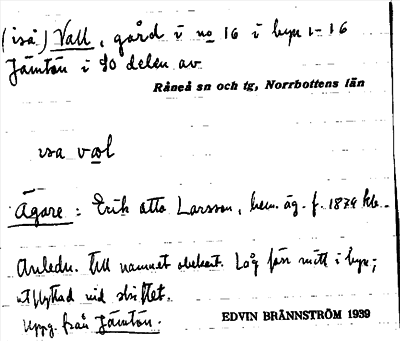 (isä) Vall, gård i no 16 i byn 1-16
Jämtön i SO delen av
Råneå sn och tg, Norrbottens län
isa val
Ägare: Erik Otto Larsson, hem. äg. f. 1879
Anledn. till namnet obekant. Låg förr mitt i byn;
utflyttad vid skiftet.
Uppg. från Jämtön.
EDVIN BRÄNNSTRÖM 1939